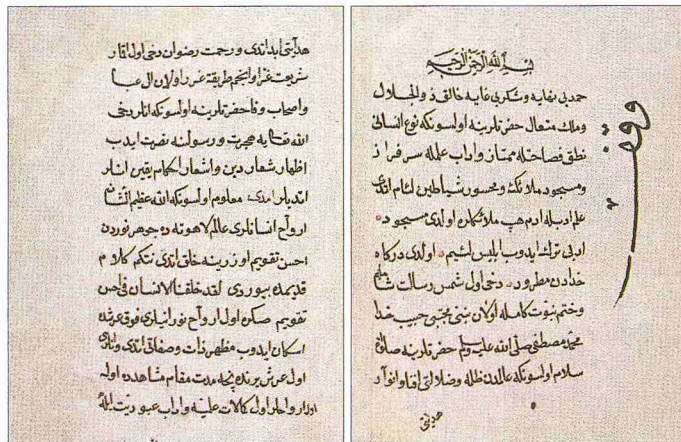 بسم الله الرحمن الرحيم
حمد بی نهایه و شکر بی غایه خالق ذو الجلال
و ملك متعال حضرتلرینه اولسونکه نوع انسانی
نطق فصاحتله ممتاز و اداب علمله سرفراز
و مسجود ملائك و محسور شیاطین لئام ایتدی
علم ادبله ادم هپ ملائکلره اولدی مسجود
ادبی ترك ایدوب ابلیس لئیم اولدی درکاه
خدادن مطرود دخی اول شمس رسالت
و ختم نبوت کامله اولان نبی مجتبی حبیب خدا
محمد مصطفی صلی الله علیه وسلم حضرتلرینه صلاة
سلام اولسونکه عالمدن ظلمه و ضلالتی افنا و انوار
هدایتی
وقف
هدایتی ابدا ایتدی و رحمت رضوان دخی اول
شریعت غرا و انجم طریقه غررا اولان ال عبا
و اصحاب و فا حضرتلرینه اولسونکه انلر دخی
الله تعالی یه هجرت و رسولنه نصرت ایدب
اظهار شعار دین و اشعار احکام یقین انلر
ایتدیلر امدی معلوم اولسونکه الله عظیم الشان
ارواح انسانلری عالم لاهوتده جوهر نوردن
احسن تقویم اوزرینه خلق ایتدی نتکم کلام
قدیمنده بیوردی لقد خلقنا الانسان فی احسن
تقویم صکره اول ارواح نورانیلری فوق عرشده
اسکان ایدوب مظهر ذات و صفاتی ایتدی و انلری
اول عرش برنده نیجه مدت مقام مشاهده اوله
اول ارواحلر اول کالات علیه و اداب عبودیت ایله